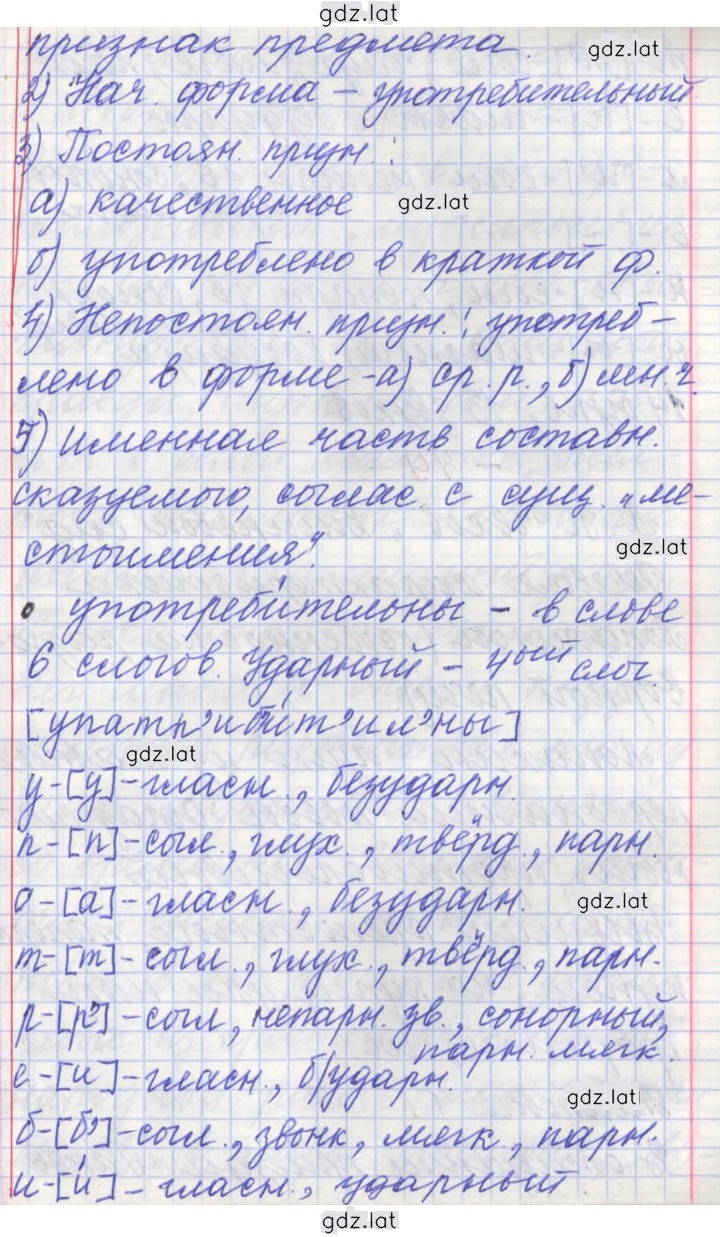 gdz.lat
признак предмета.
gdz.lat
2) Нач. форма – употребительный
3) Постоян. призн.:
а) качественное
gdz.lat
б) употреблено в краткой ф.
4) Непостоян. призн.: употреб-
лено в форме -а) ср. р., б) мн. ч.
5) именная часть составн.
сказуемого, соглас. с сущ. „ме-
стоимения".
gdz.lat
• употреби́тельны – в слове
6 слогов. Ударный – 4ый слог.
[упатр'иби́т'ил'ны]
gdz.lat
у-[у]-гласн., безударн.
п-[п]-согл., глух., твёрд., парн.
о-[а]-гласн., безударн.
gdz.lat
т-[т]-согл., глух., твёрд., парн.
р-[р']-согл, непарн. зв., сонорный,
парн. мягк.
е-[и]-гласн., б/ударн.
gdz.lat
б-[б']-согл., звонк, мягк., парн.
и-[и́]-гласн., ударный.
gdz.lat